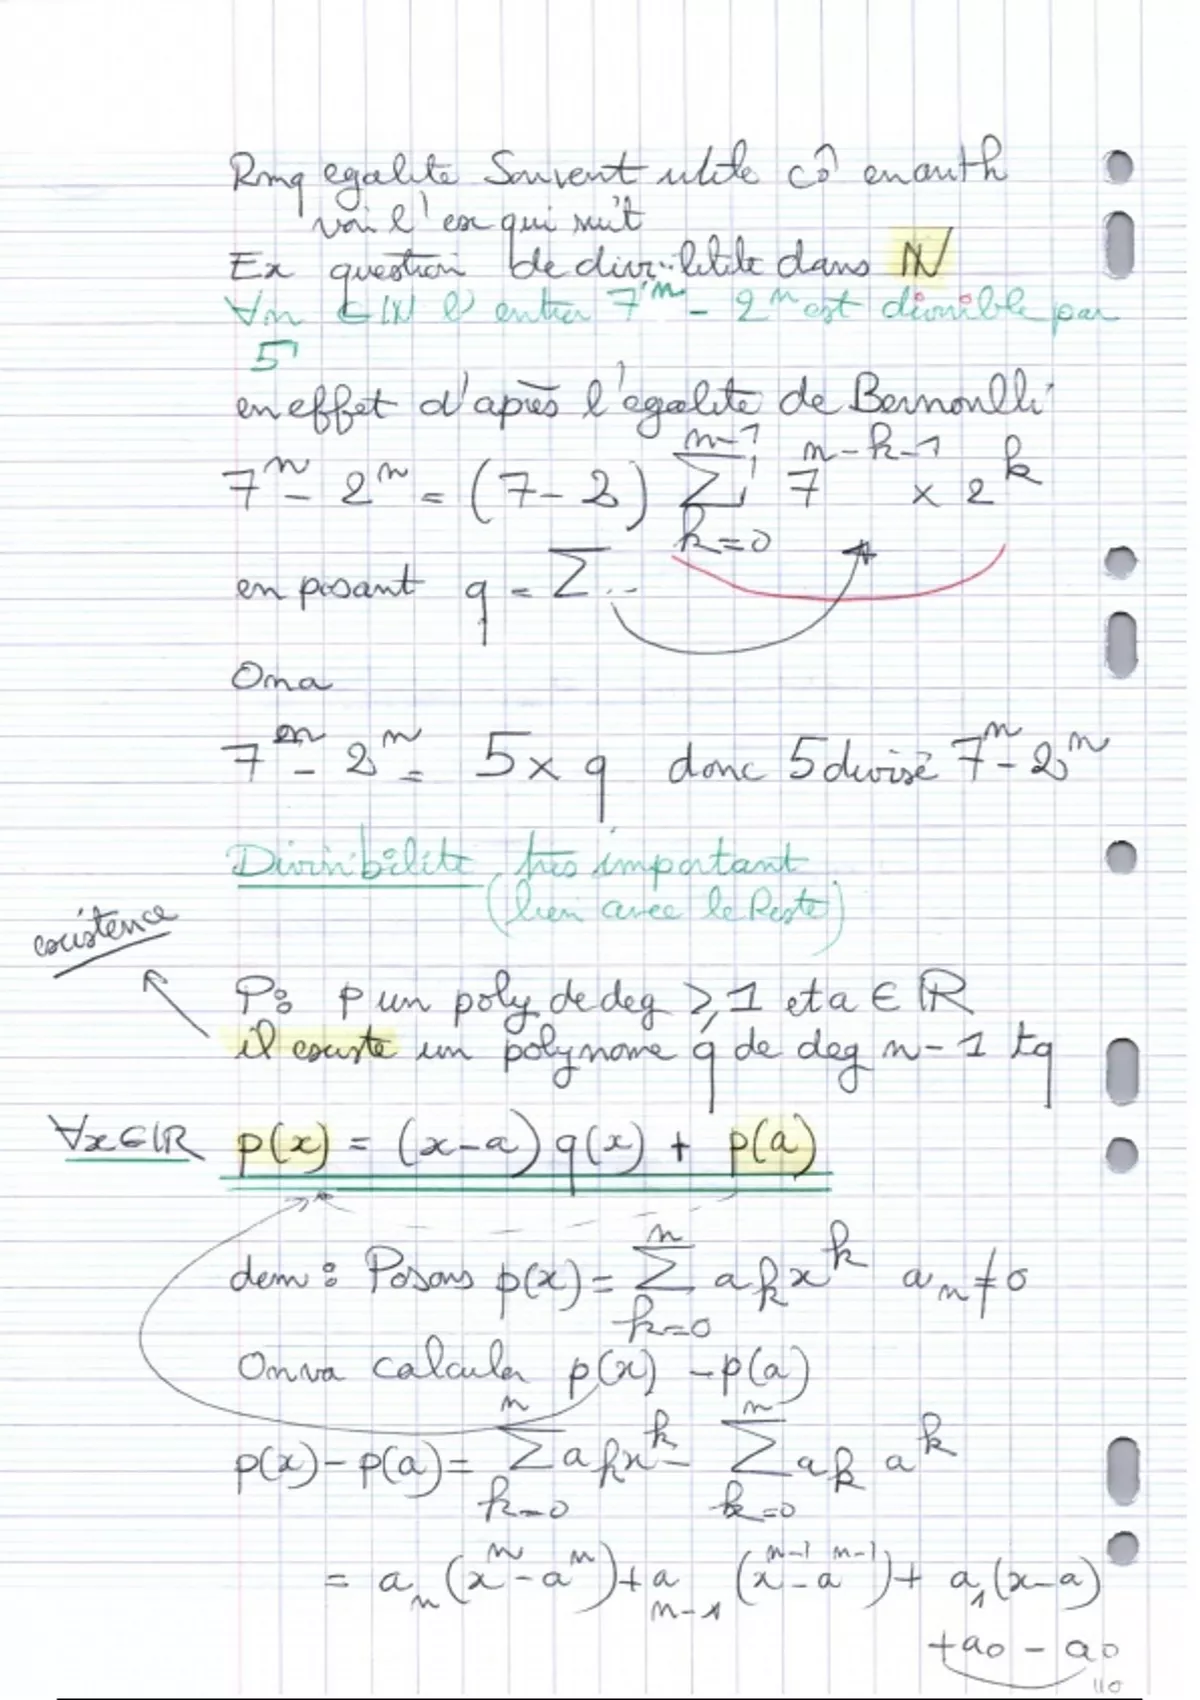 Rmq egalite Souvent utile cô en arith
voir l'ex qui suit
Ex question de divisibilite dans ℕ
∀n ∈ ℕ l'entier 7ⁿ - 2ⁿ est divisible par
5
en effet d'après l'égalite de Bernoulli
7ⁿ - 2ⁿ = (7-2) ∑_{k=0}^{n-1} 7^{n-k-1} × 2^k
en posant q = ∑...
On a
7ⁿ - 2ⁿ = 5 × q donc 5 divise 7ⁿ - 2ⁿ
Divisibilite très important
(lien avec le Reste)
existence
P: p un poly de deg ⩾ 1 et a ∈ ℝ
il existe un polynome q de deg n-1 tq
∀x∈ℝ p(x) = (x-a) q(x) + p(a)
dem : Posons p(x) = ∑_{k=0}^{n} a_k x^k a_n ≠ 0
On va calculer p(x) - p(a)
p(x) - p(a) = ∑_{k=0}^{n} a_k x^k - ∑_{k=0}^{n} a_k a^k
= a_n (xⁿ - aⁿ) + a_{n-1} (x^{n-1} - a^{n-1}) + a_1 (x-a)
+ a_0 - a_0
"0